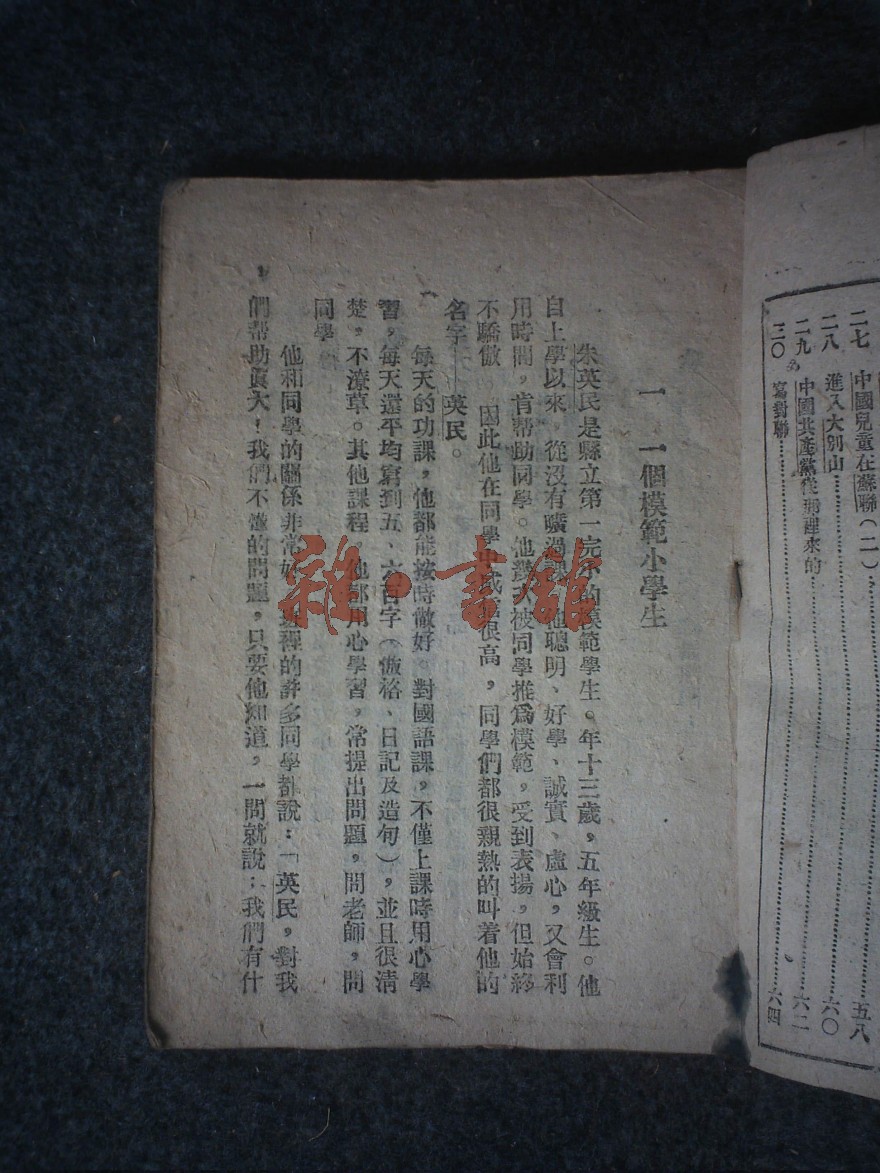 二七 中國兒童在蘇聯（二）……五八
二八 進入大別山……六〇
二九 中國共產黨從那裡來的……六二
三〇 寫對聯……六四
一 一個模範小學生
朱英民是縣立第一完小的模範學生。年十三歲，五年級生。他
自上學以來，從沒有曠過課。他聰明、好學、誠實、虛心，又會利
用時間，肯帮助同學。他被同學推爲模範，受到表揚，但始終
不驕傲 因此他在同學中威很高，同學們都很親熱的叫着他的
名字——英民。
每天的功課，他都能按時做好。對國語課，不僅上課時用心學
習，每天還平均寫到五、六百字（倣格、日記及造句），並且很清
楚，不潦草。其他課程，他都用心學習，常提出問題，問老師，問
同學
他和同學的關係非常好，裡的許多同學都說：「英民，對我
們帮助眞大！我們不懂的問題，只要他知道，一問就說；我們有什
雜·書館